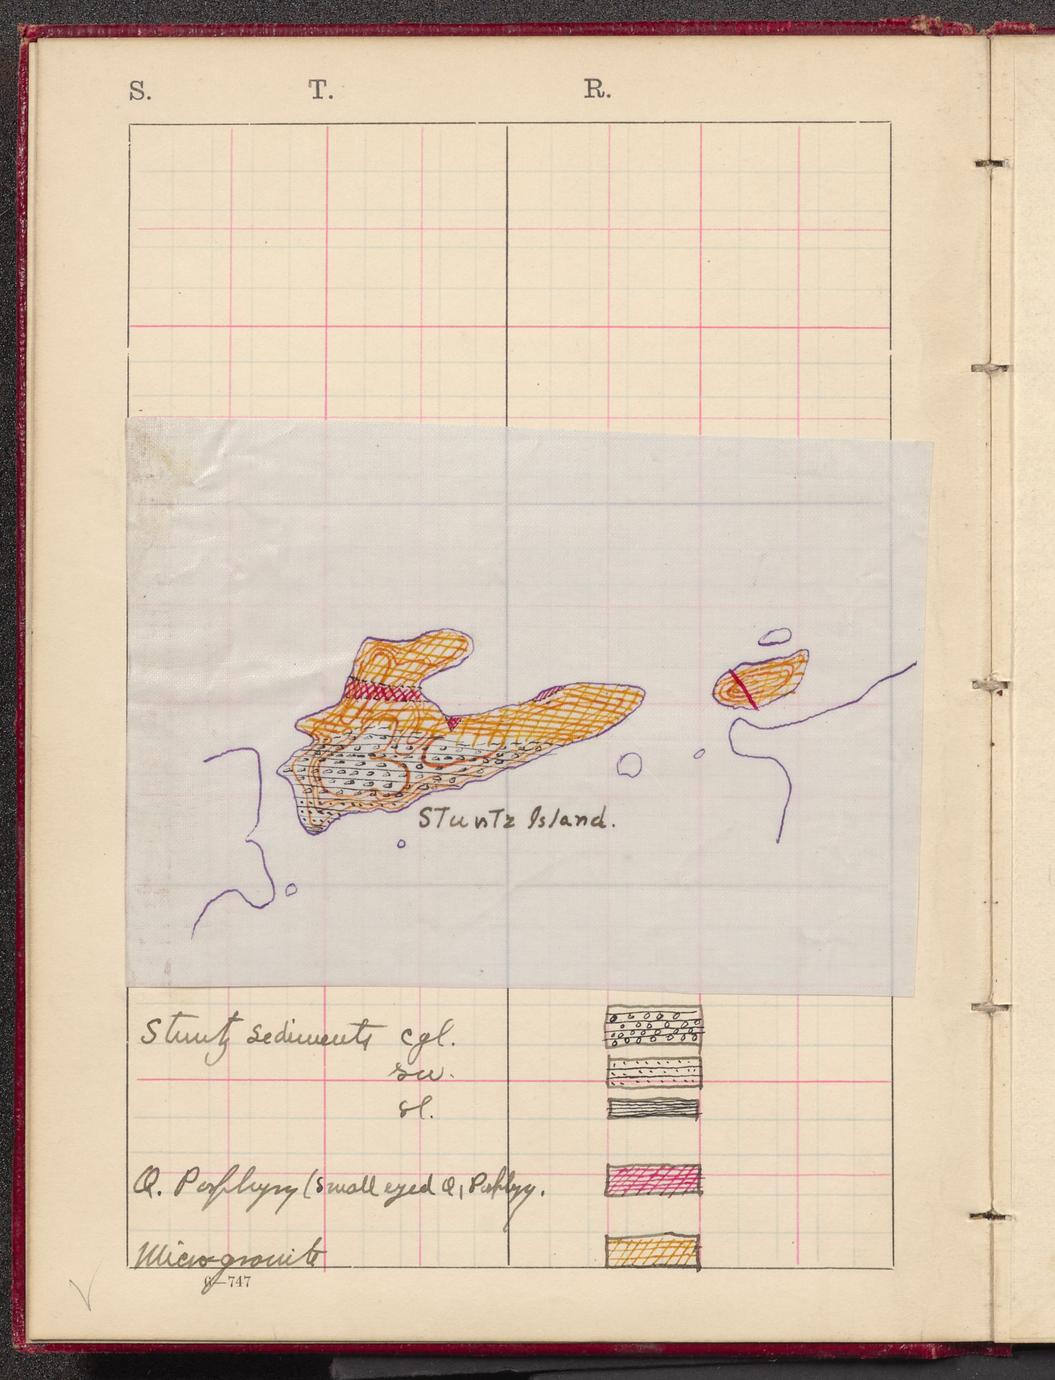 S. T. R.
Stuntz Island.
Stuntz sediments cgl.
sl.
Q. Porphyry (small eyed Q. Porphyry.
Microgranite
G—747